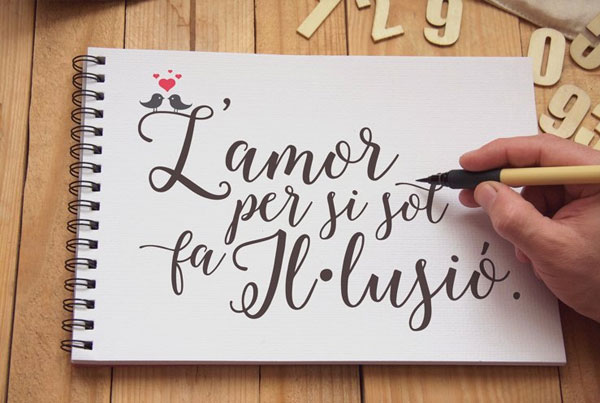 7 2 9 0
9
L'amor
per si sol
fa Il·lusió.